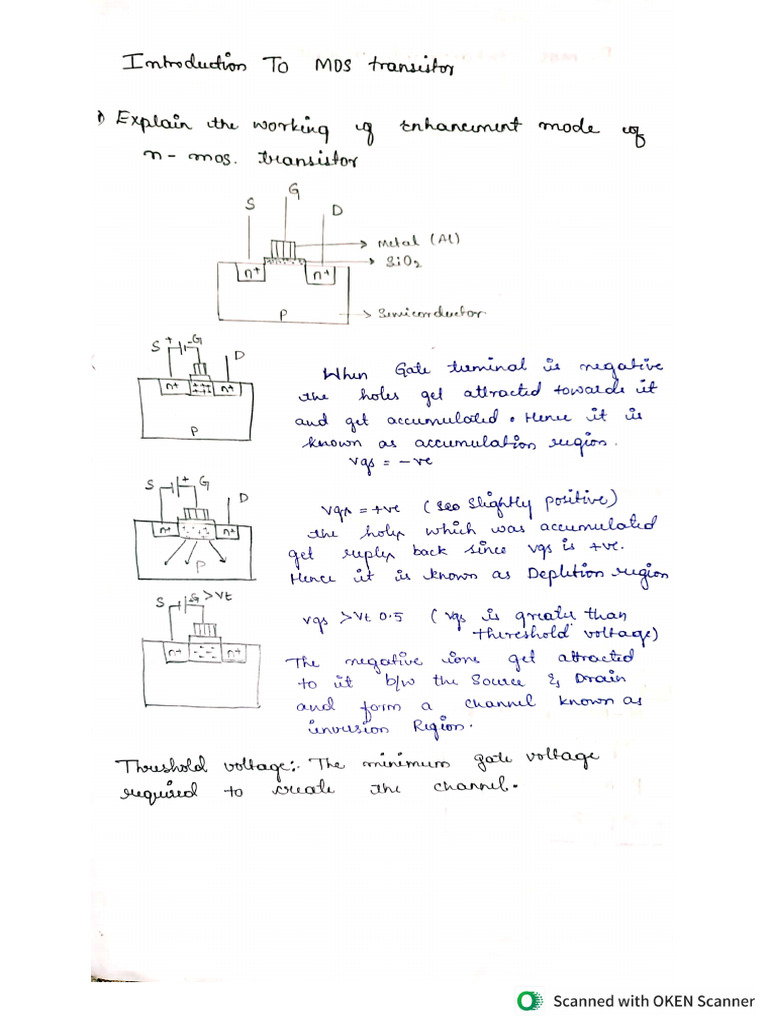 Introduction To MOS transistor
1) Explain the working of enhancement mode of
n- mos. transistor
G
S
D
Metal (Al)
SiO2
n+
n+
P
Semiconductor
S + - G
D
n+ ++++ n+
P
When Gate terminal is negative
the holes get attracted towards it
and get accumulated. Hence it is
known as accumulation region.
Vgs = -ve
S + G
D
n+ n+
P
Vgs = +ve ( slightly positive)
the holes which was accumulated
get replex back since vgs is +ve.
Hence it is known as Depletion region
S G >Vt
n+ n+
Vgs >Vt 0.5 ( Vgs is greater than
thereshold voltage)
The negative ions get attracted
to it b/w the Source & Drain
and form a channel known as
invusion Region.
Threshold voltage:. The minimum gate voltage
required to create the channel.
Scanned with OKEN Scanner